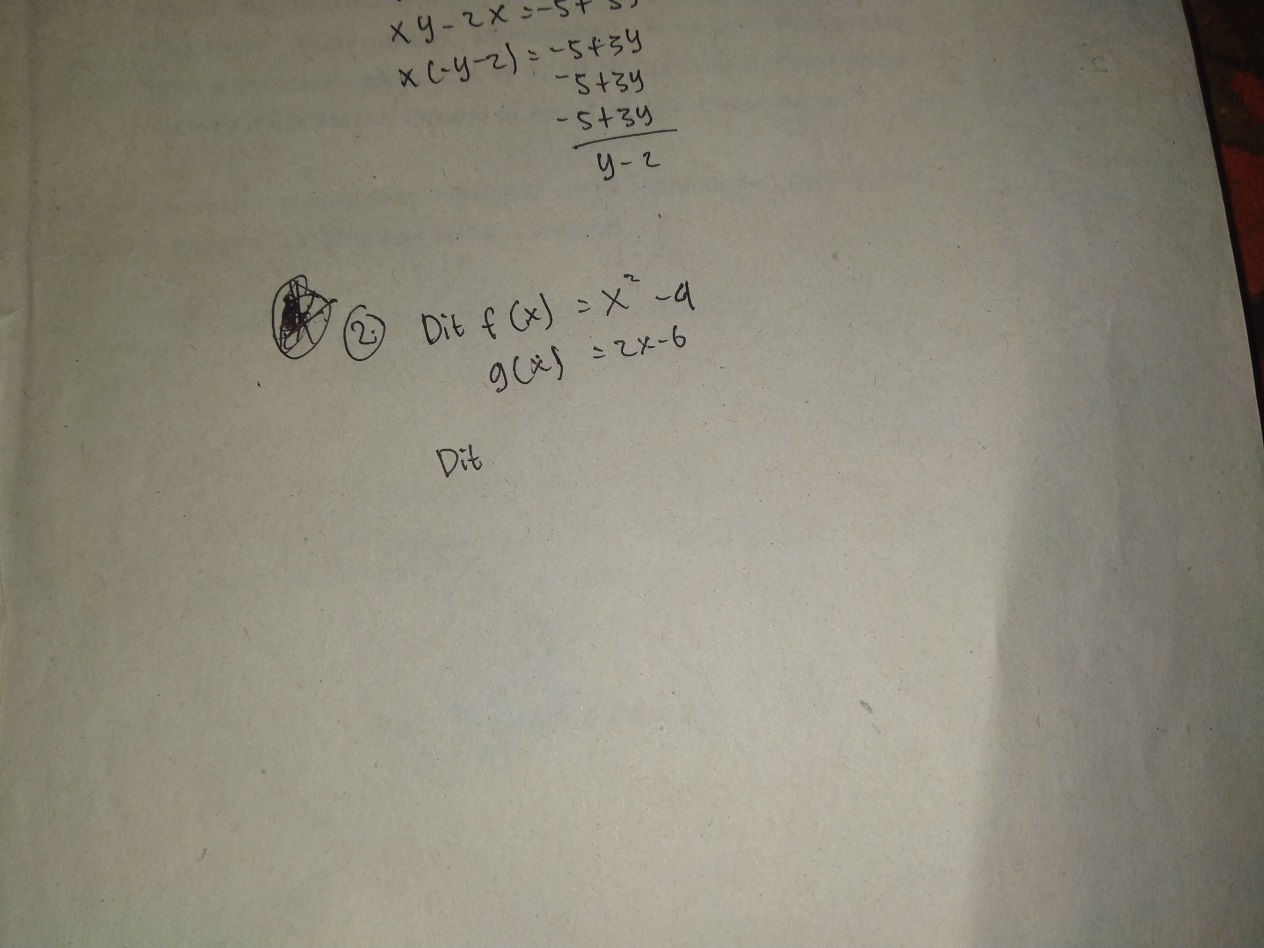 xy-2x=-5+3y
x(-y-2)=-5+3y
-5+3y
-5+3y
y-2
2. Dit f(x) = x²-4
g(x) = 2x-6
Dit